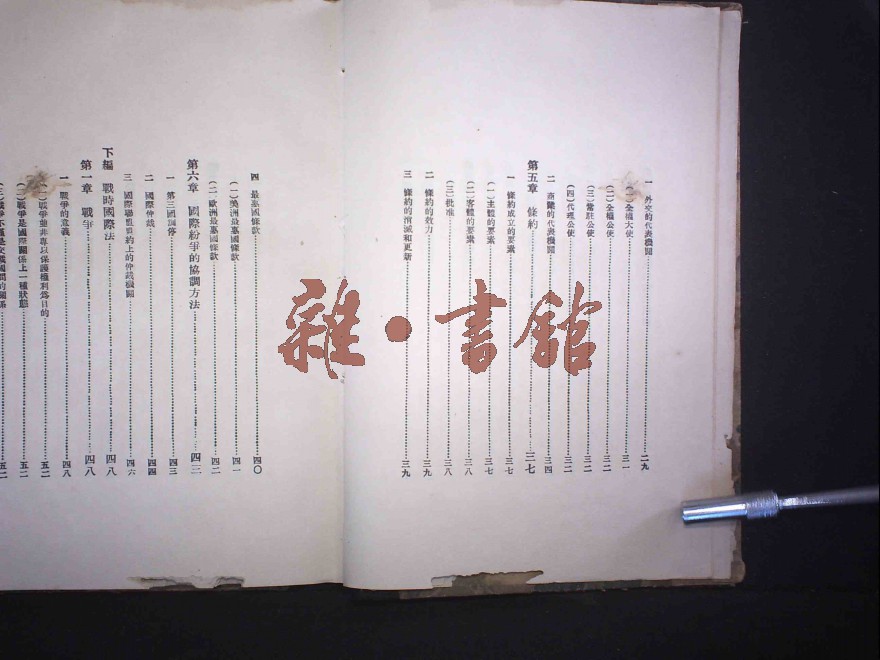 一 外交的代表機關 二九
(一)全權大使 三一
(二)全權公使 三二
(三)常駐公使 三二
(四)代理公使 三三
二 商務的代表機關 三四
第五章 條約 三七
一 條約成立的要素 三七
(一)主體的要素 三七
(二)客體的要素 三八
(三)批准 三八
二 條約的效力 三九
三 條約的消滅和更新 三九
四 最惠國條款 四〇
(一)美洲最惠國條款 四一
(二)歐洲最惠國條款 四二
第六章 國際紛爭的協調方法 四三
一 第三國調停 四三
二 國際仲裁 四四
三 國際聯盟盟約上的仲裁機關 四六
下編 戰時國際法 四八
第一章 戰爭 四八
一 戰爭的意義 四八
(一)戰爭並非專以保護權利爲目的 五二
(二)戰爭是國際關係上一種狀態 五二
(三)戰爭不僅是交戰國間的關係 五二
雜·書館